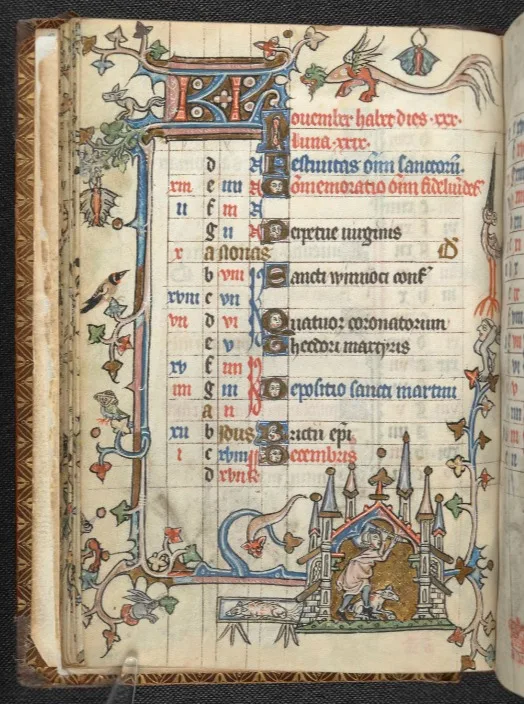 KL Nouember habet dies .xxx.
luna .xxix.
d A Festiuitas om̄ sanctoru̅.
xiii e iiii N Co̅memoratio om̄ fideliu̅ def̄
ii f iii N
g ii N Perpetue uirginis
x a Nonas
b viii id Sancti winnoci conf̄
xviii c vii
vii d vi Quatuor coronatorum
e v Theodori martyris
xv f iiii
iiii g iii Depositio sancti martini
a ii
xii b Idus Brictii ep̅i
i c xviii Decembris
d xvii k